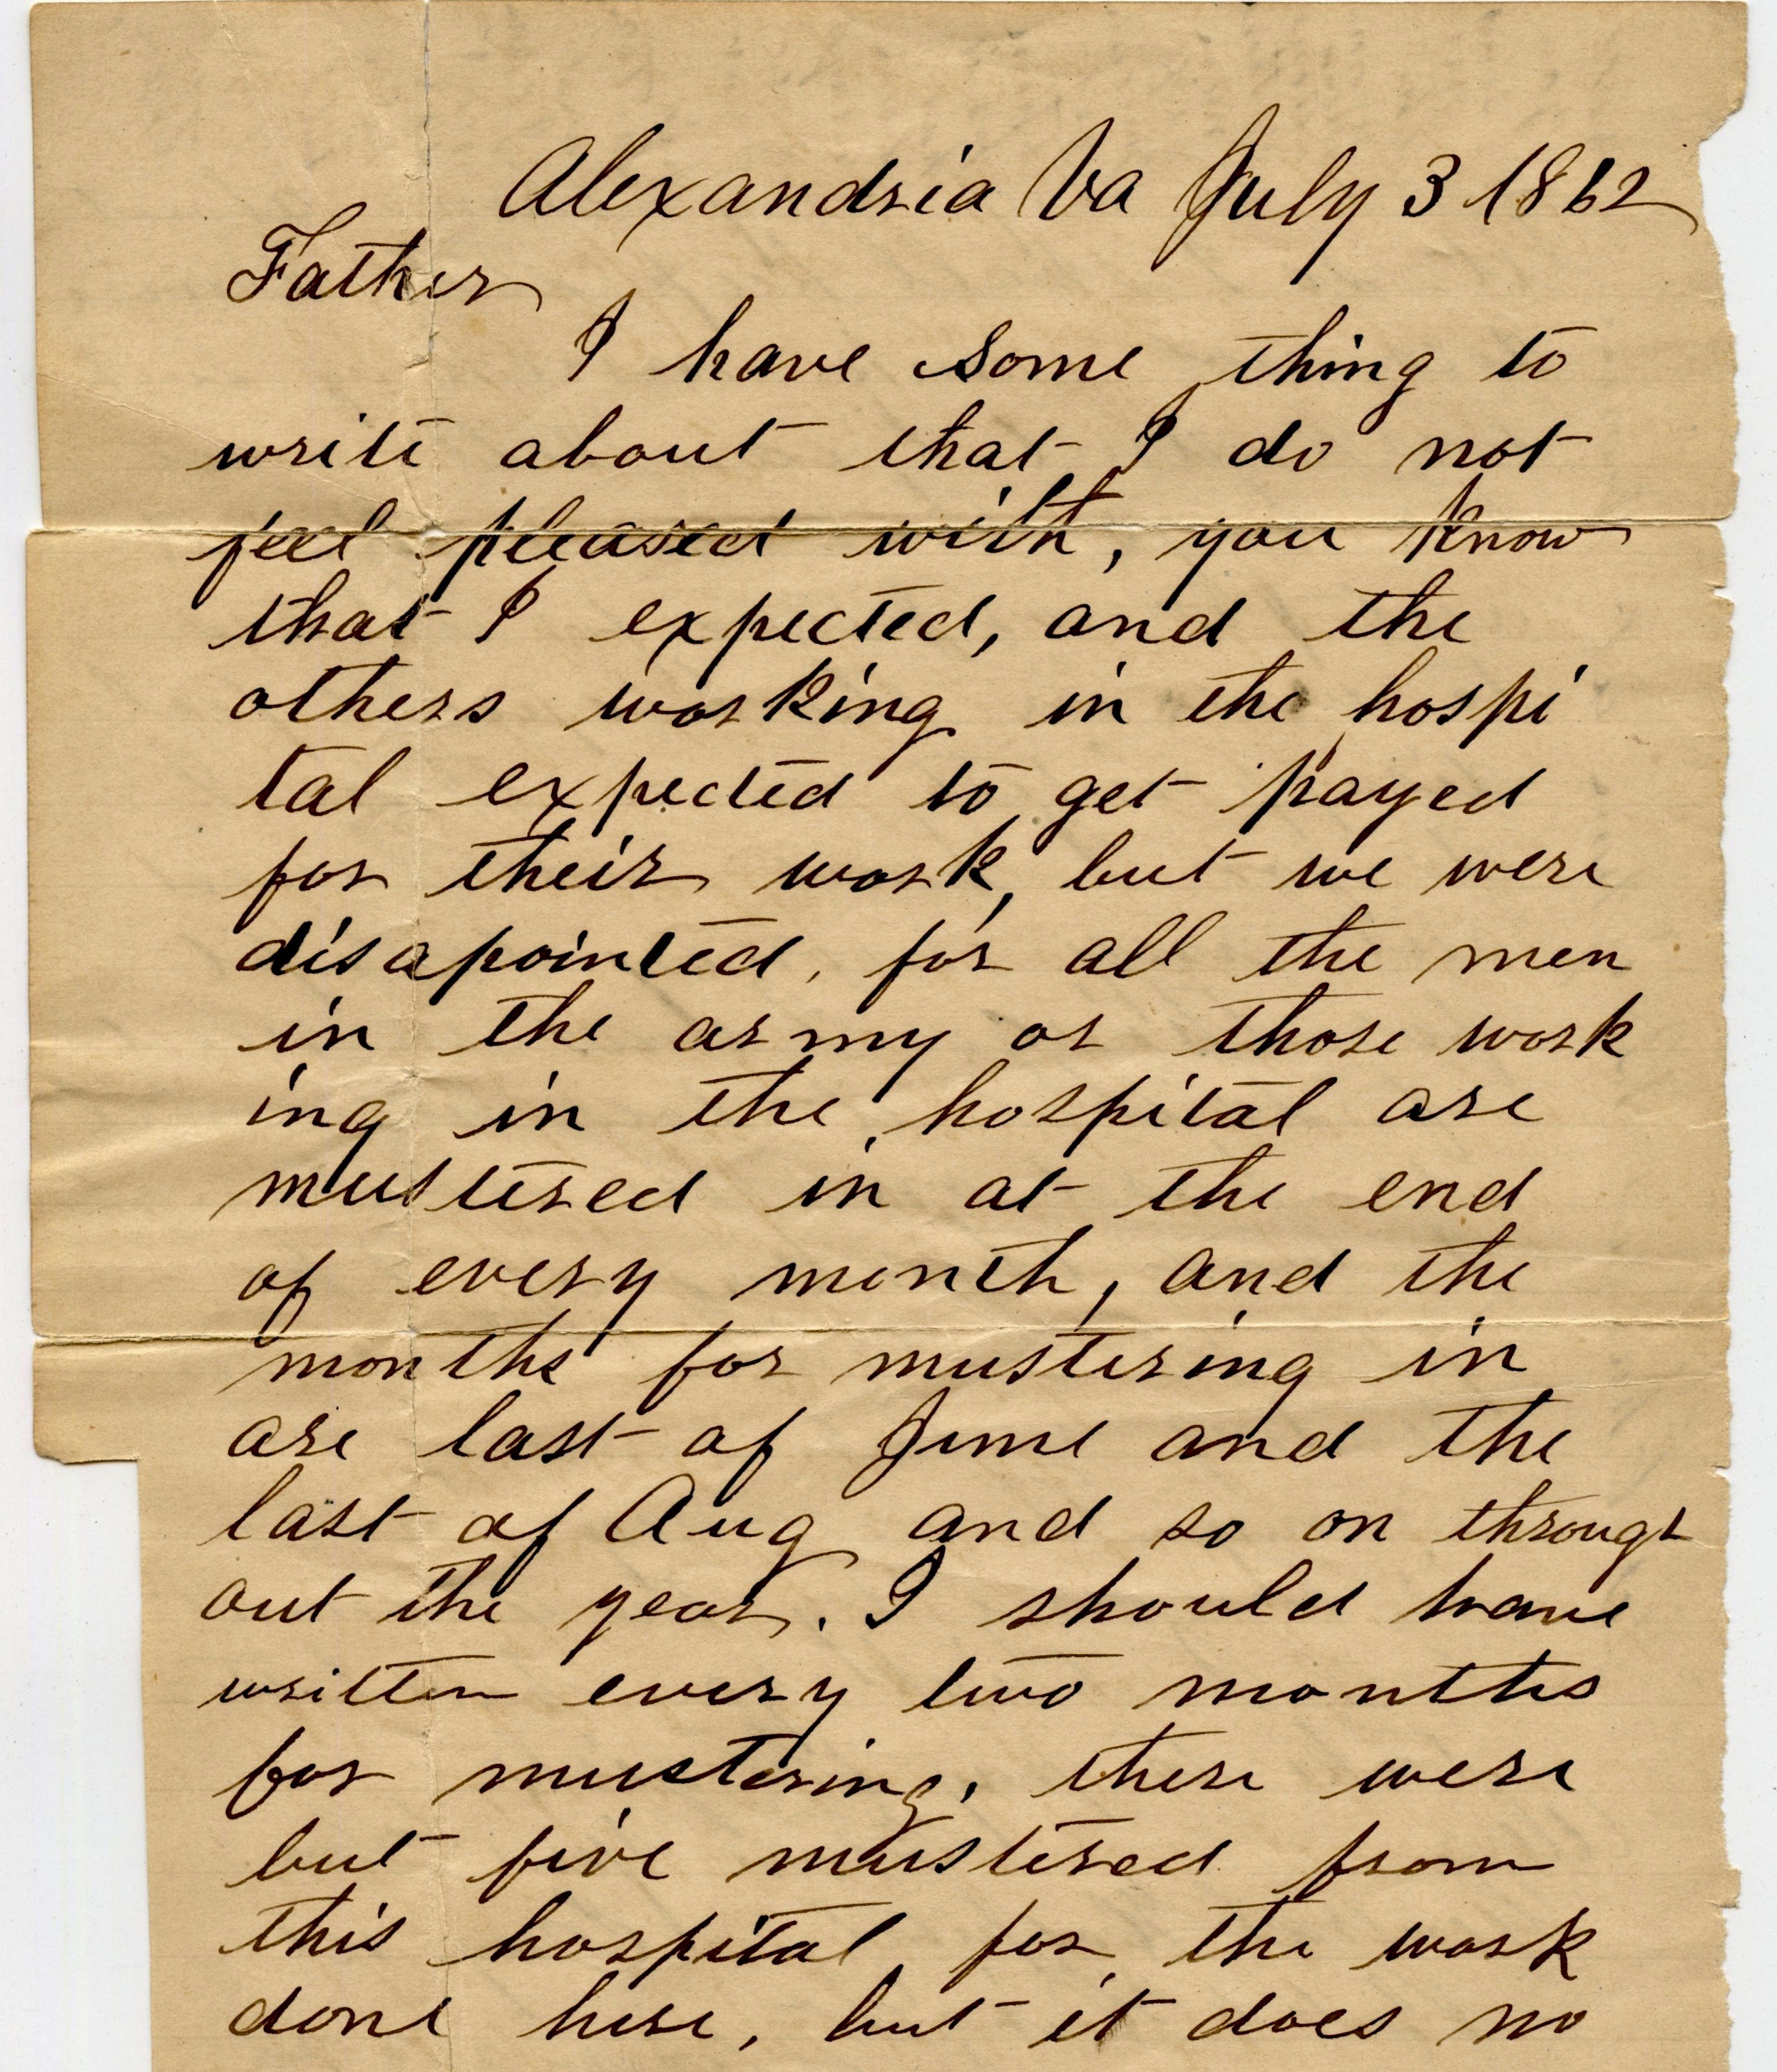 Alexandria Va July 3 1862
Father
I have some thing to
write about that I do not
feel pleased with, you know
that I expected, and the
others working in the hospi
tal expected to get payed
for their work, but we were
disapointed, for all the men
in the army or those work
ing in the hospital are
mustered in at the end
of every month, and the
months for mustering in
are last of June and the
last of Aug and so on through
out the year. I should have
written every two months
for mustering, there were
but five mustered from
this hospital for the work
done here, but it does no